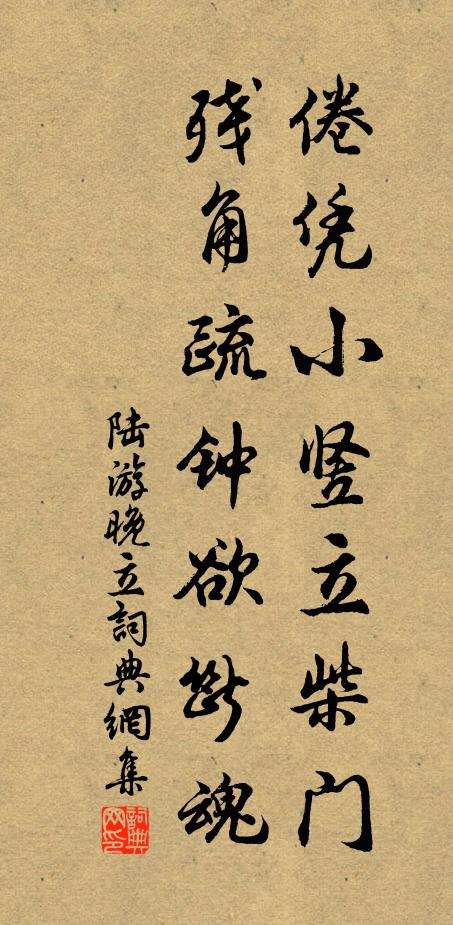 倦凭小竖立柴门
残角疏钟欲断魂
陆游晚立詞典網集
詞典
网印